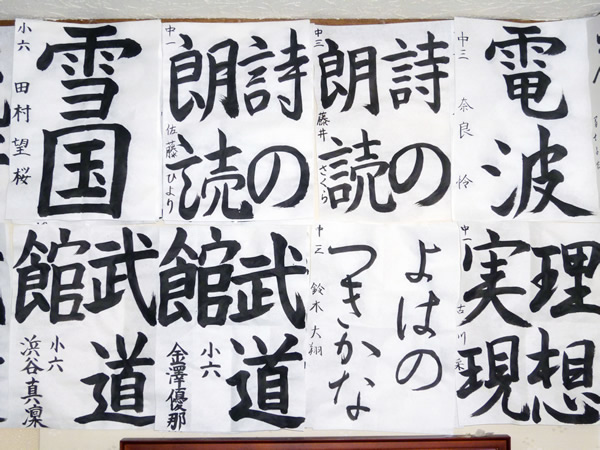 雪国
小六 田村望桜
詩の
朗読
中一 佐藤ひより
詩の
朗読
中三 藤井さくら
電波
中三 奈良怜
武道
館
小六
浜谷真凜
武道
館
小六
金澤優那
よはの
つきかな
鈴木大翔
理想
実現
中一 古川